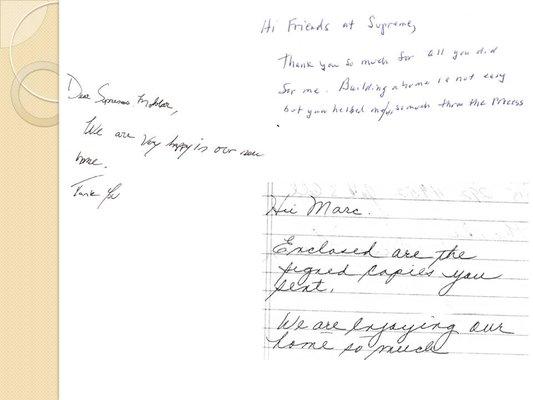 Hi Friends at Supreme,
Thank you so much for all you did
for me. Building a home is not easy
but you helped me so much thru the Process
Dear
We are very happy in our new
home.
Thank You
Hi Marc.
Enclosed are the
signed copies you
sent.
We are enjoying our
home so much